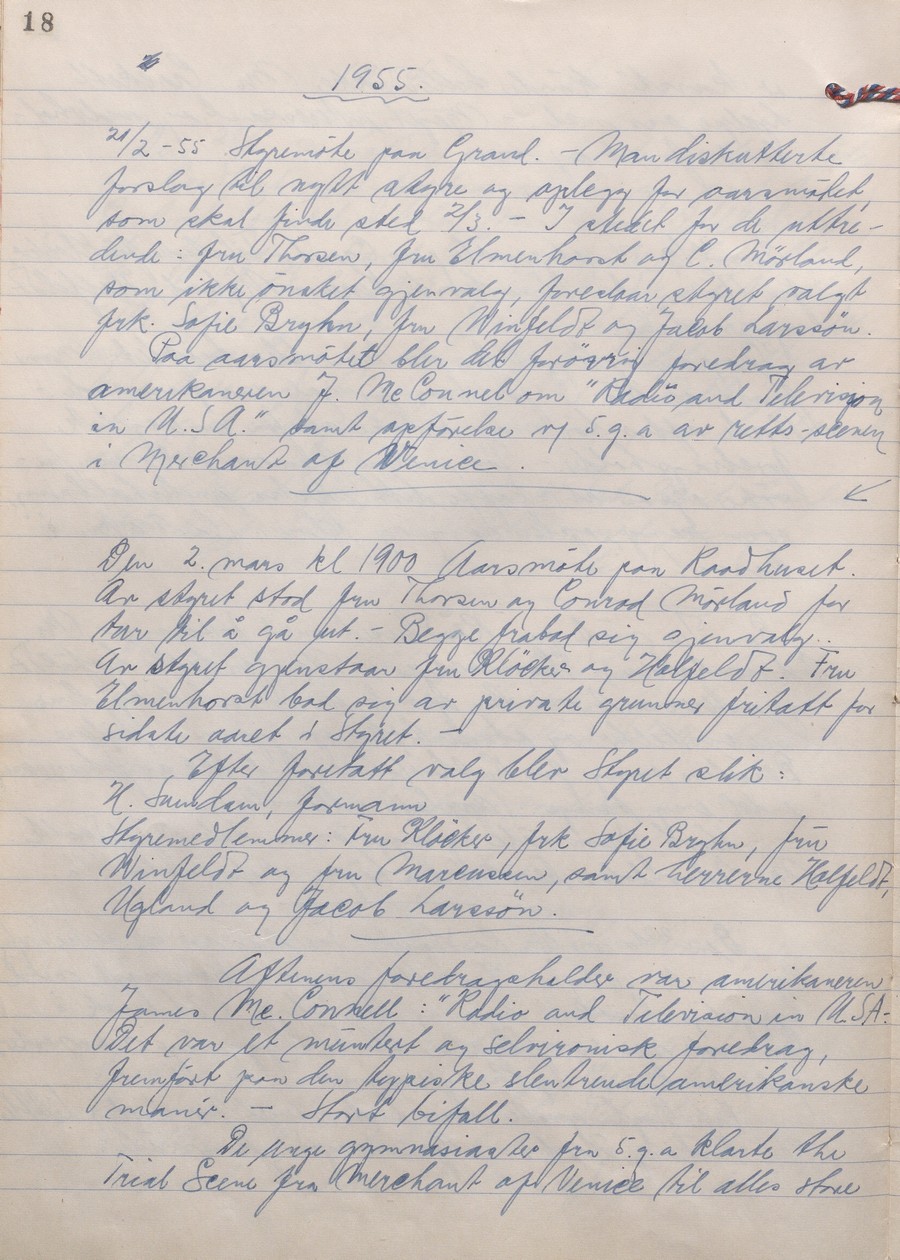 18
1955.
21/2 -55 Styremöte paa Grand. - Man diskutterte
forslag til nytt styre og oplegg for aarsmötet,
som skal finde sted 2/3. - I stedet for de uttre-
dende: fru Thorsen, fru Elmenhorst og C. Mörland,
som ikke önsket gjenvalg, foreslaar styret valgt
frk. Sofie Bryhn, fru Winfeldt og Jacob Larssön.
Paa aarsmötet blir det forövrig foredrag av
amerikaneren J. McConnel om "Radio and Television
in U.S.A." samt opförelse v/ 5.g.a av retts-scenen
i Merchant of Venice.
Den 2. mars kl 1900 Aarsmöte paa Raadhuset.
Av styret stod fru Thorsen og Conrad Mörland for
tur til å gå ut. - Begge frabad sig gjenvalg..
Av styret gjenstaar fru Klöcker og Halfeldt. Fru
Elmenhorst bad sig av private grunner fritatt for
sidste aaret i Styret. -
Efter foretatt valg blev Styret slik:
H. Sundam, formann
Styremedlemmer: Fru Klöcker, frk Sofie Bryhn, fru
Winfeldt og fru Marcussen, samt herrerne Halfeldt,
Ugland og Jacob Larssön.
Aftenens foredragsholder var amerikaneren
James Mc. Connell: "Radio and Television in U.SA.
Det var et muntert og selvironisk foredrag,
fremfört paa den typiske slentrende amerikanske
manér. - Stort bifall.
De unge gymnasiaster fra 5.g.a klarte the
Trial Scene fra Merchant of Venice til alles store